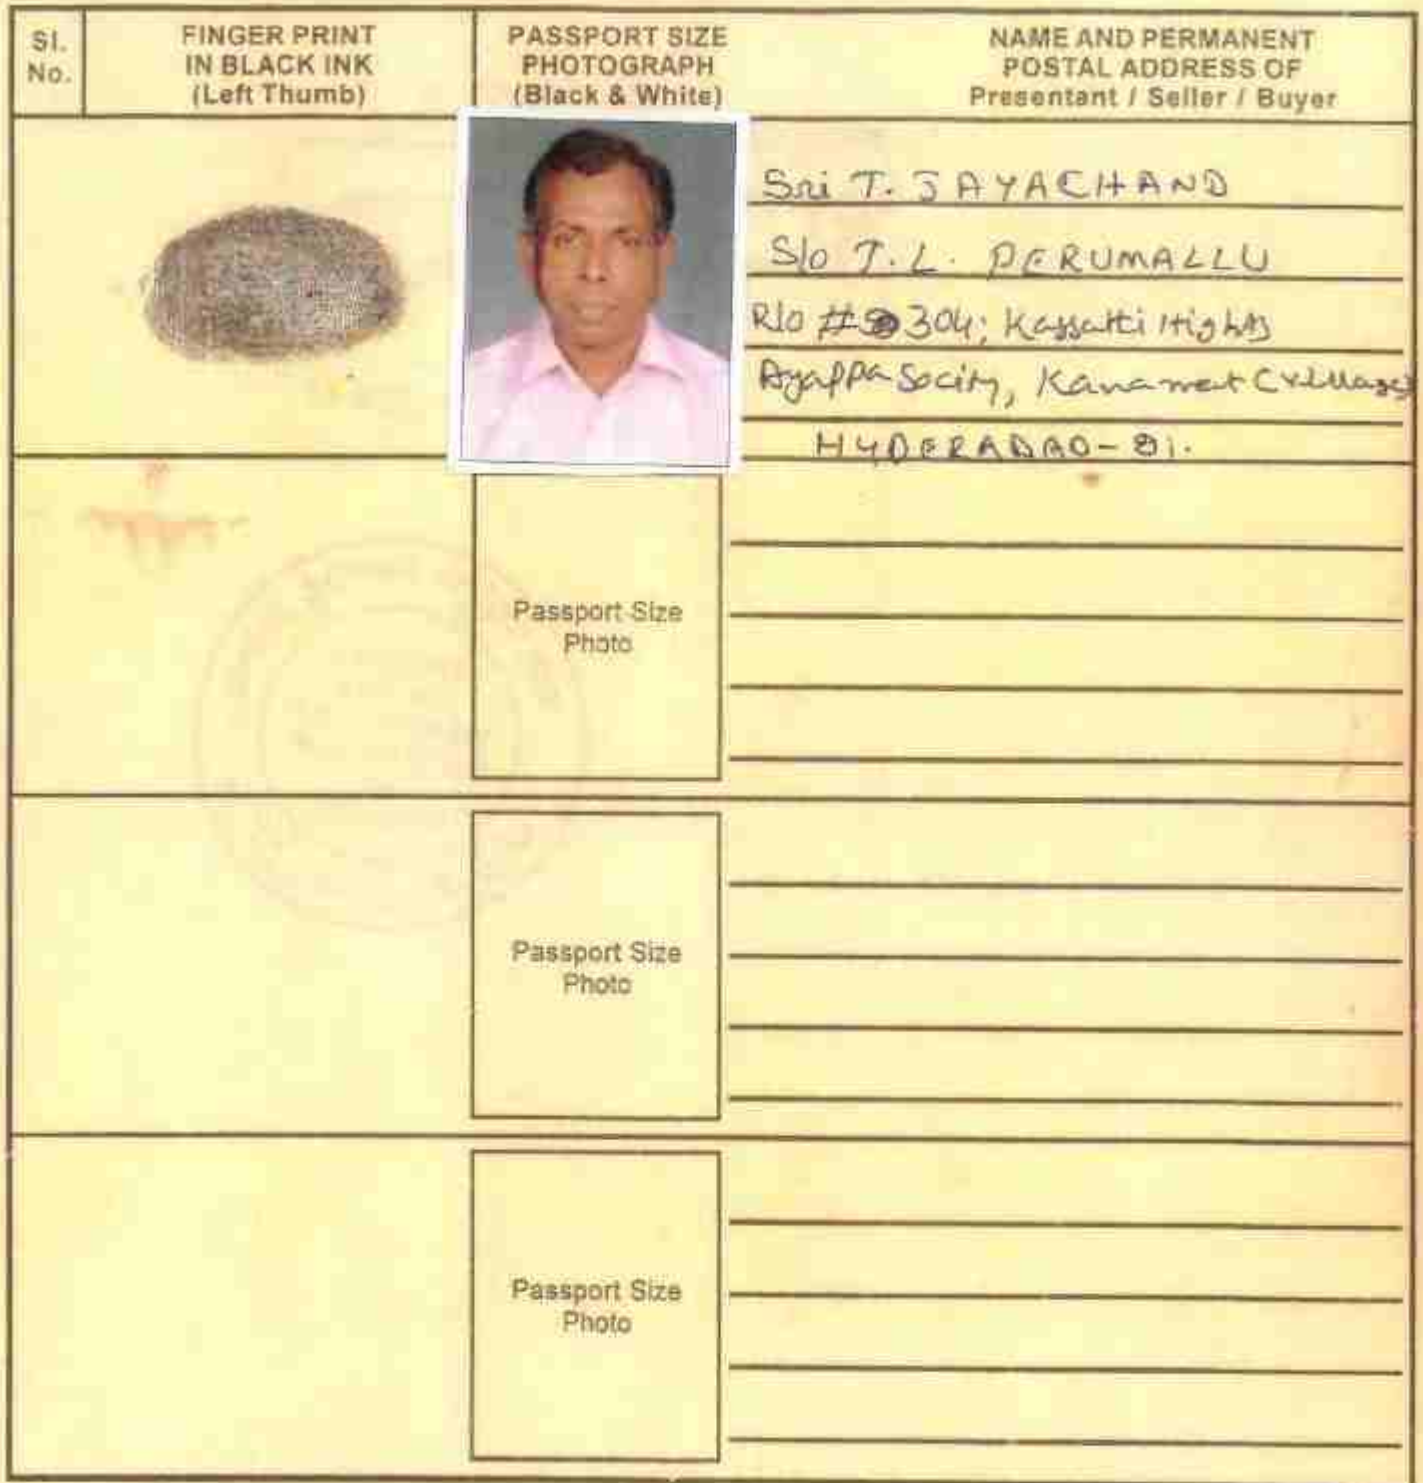 Sl.
No.
FINGER PRINT
IN BLACK INK
(Left Thumb)
PASSPORT SIZE
PHOTOGRAPH
(Black & White)
NAME AND PERMANENT
POSTAL ADDRESS OF
Presentant / Seller / Buyer
Sri T. JAYACHAND
S/o T.L. PERUMALLU
R/o # 304; Hights
Ayappa Socity, (Village)
HYDERABAD - 81.
Passport Size
Photo
Passport Size
Photo
Passport Size
Photo